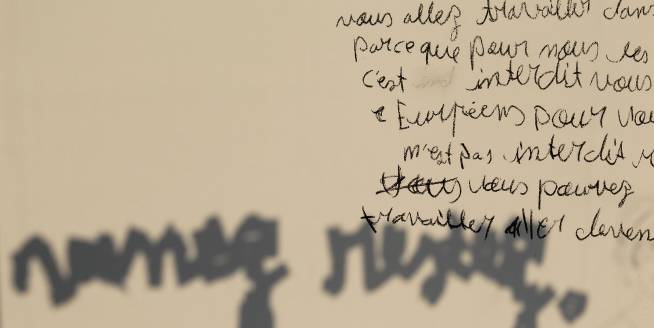 vous allez travailler dans
parce que pour nous les
c'est interdit vous
Européens pour vou
n'est pas interdit v
vous vous pouvez
travailler aller deven